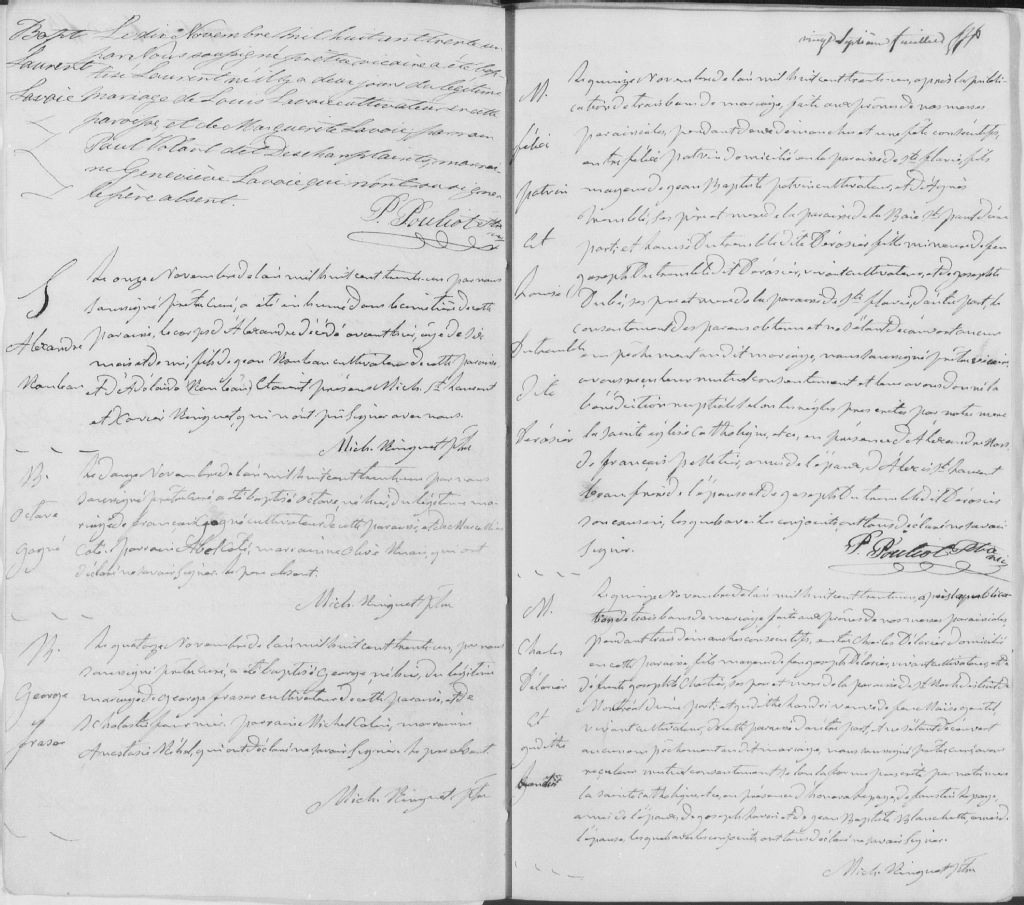 Bapt. Le dix Novembre mil huit cent trente un
Laurent par Nous soussigné prêtre vicaire a été bap-
tisé Laurent né il y a deux jours du légitime
Lavoie mariage de Louis Lavoie cultivateur en cette
paroisse et de Marguerite Lavoie, parrain
Paul Volant dit Deschamplain marrai-
ne Geneviève Lavoie qui n'ont su signer
le père absent.
P. Pouliot Ptre
S
Le onze Novembre de l'an mil huit cent trente un, par nous
soussigné prêtre curé, a été inhumé dans le cimetière de cette
Alexandre paroisse, le corps d'Alexandre décédé avant hier, âgé de six
mois et demi, fils de Jean Banban cultivateur de cette paroisse
Et d'Adélaïde Étaient présens Mich. St. Laurent
et Xavier Ringuet, qui n'ont pu signer avec nous.
Mich. Ringuet ptre
B. Le douze Novembre de l'an mil huit cent trente un par nous
soussigné prêtre curé a été baptisé Octave, né hier, du légitime ma-
Octave riage de François Gagné cultivateur de cette paroisse, et de Marcelline
Gagné Coté. Parrain Coté, marraine Olive qui ont
déclaré ne savoir signer. Le père absent.
Mich. Ringuet ptre
B. Le quatorze Novembre de l'an mil huit cent trente un, par nous
soussigné prêtre curé, a été baptisé George né hier, du légitime
George mariage de George Fraser cultivateur de cette paroisse, et de
Fraser Scholastique Fournier. Parrain Michel marraine
Anastasie qui ont déclaré ne savoir signer. Le père absent.
Mich. Ringuet ptre
vingt Septième feuillet
M. Le quinze Novembre de l'an mil huit cent trente un, après la publi-
cation de trois bans de mariage, faite aux prônes de nos messes
Féléci paroissiales, pendant deux dimanches et une fête consécutifs,
entre Féléci Potvin domicilié en la paroisse de Ste. Flavie, fils
Potvin majeur de Jean Baptiste Potvin cultivateur, et d'Agnès
Tremblé, ses père et mère de la paroisse de la Baie St. Paul d'une
Et part; et Louise Dutremble dite Dérosier fille mineure de feu
Joseph Dutremble dit Dérosier, vivant cultivateur, et de Josephte
Louise Dubé, ses père et mère de la paroisse de Ste. Flavie, d'autre part, le
consentement des parens obtenu et ne s'étant découvert aucun
Dutremble empêchement au dit mariage, nous soussigné prêtre vicaire,
avons reçu leur mutuel consentement et leur avons donné la
dite bénédiction nuptiale selon les règles prescrites par notre mère
Dérosier la sainte église Catholique, et ce, en présence d'Alexandre
de François Pelletier, amis de l'époux, d'Alexis St. Laurent
beau frère de l'épouse et de Joseph Dutremble dit Dérosier
son cousin, lesquels avec les conjoints ont tous déclaré ne savoir
signer.
P. Pouliot Ptre
M. Le quinze Novembre de l'an mil huit cent trente un, après la publica-
tion de trois bans de mariage faite aux prônes de nos messes paroissiales
Charles pendant trois dimanches consécutifs, entre Charles Délorier domicilié
en cette paroisse fils majeur de feu Joseph Délorier, vivant cultivateur, et de
Délorier défunte Josephte Chartier, ses père et mère de la paroisse de St. Roch district de
Montréal d'une part; et Judithe veuve de feu
Et vivant cultivateur, de cette paroisse d'autre part, et ne s'étant découvert
Judithe aucun empêchement au dit mariage, nous soussigné prêtre curé, avons
reçu leur mutuel consentement selon la forme prescrite par notre mère
la sainte Catholique, et ce, en présence d'Honoré Lepage, de Faustin Lepage,
amis de l'époux, de Joseph et de Jean Baptiste Blanchette, amis de
l'épouse, lesquels avec les conjoints ont tous déclaré ne savoir signer.
Mich. Ringuet ptre